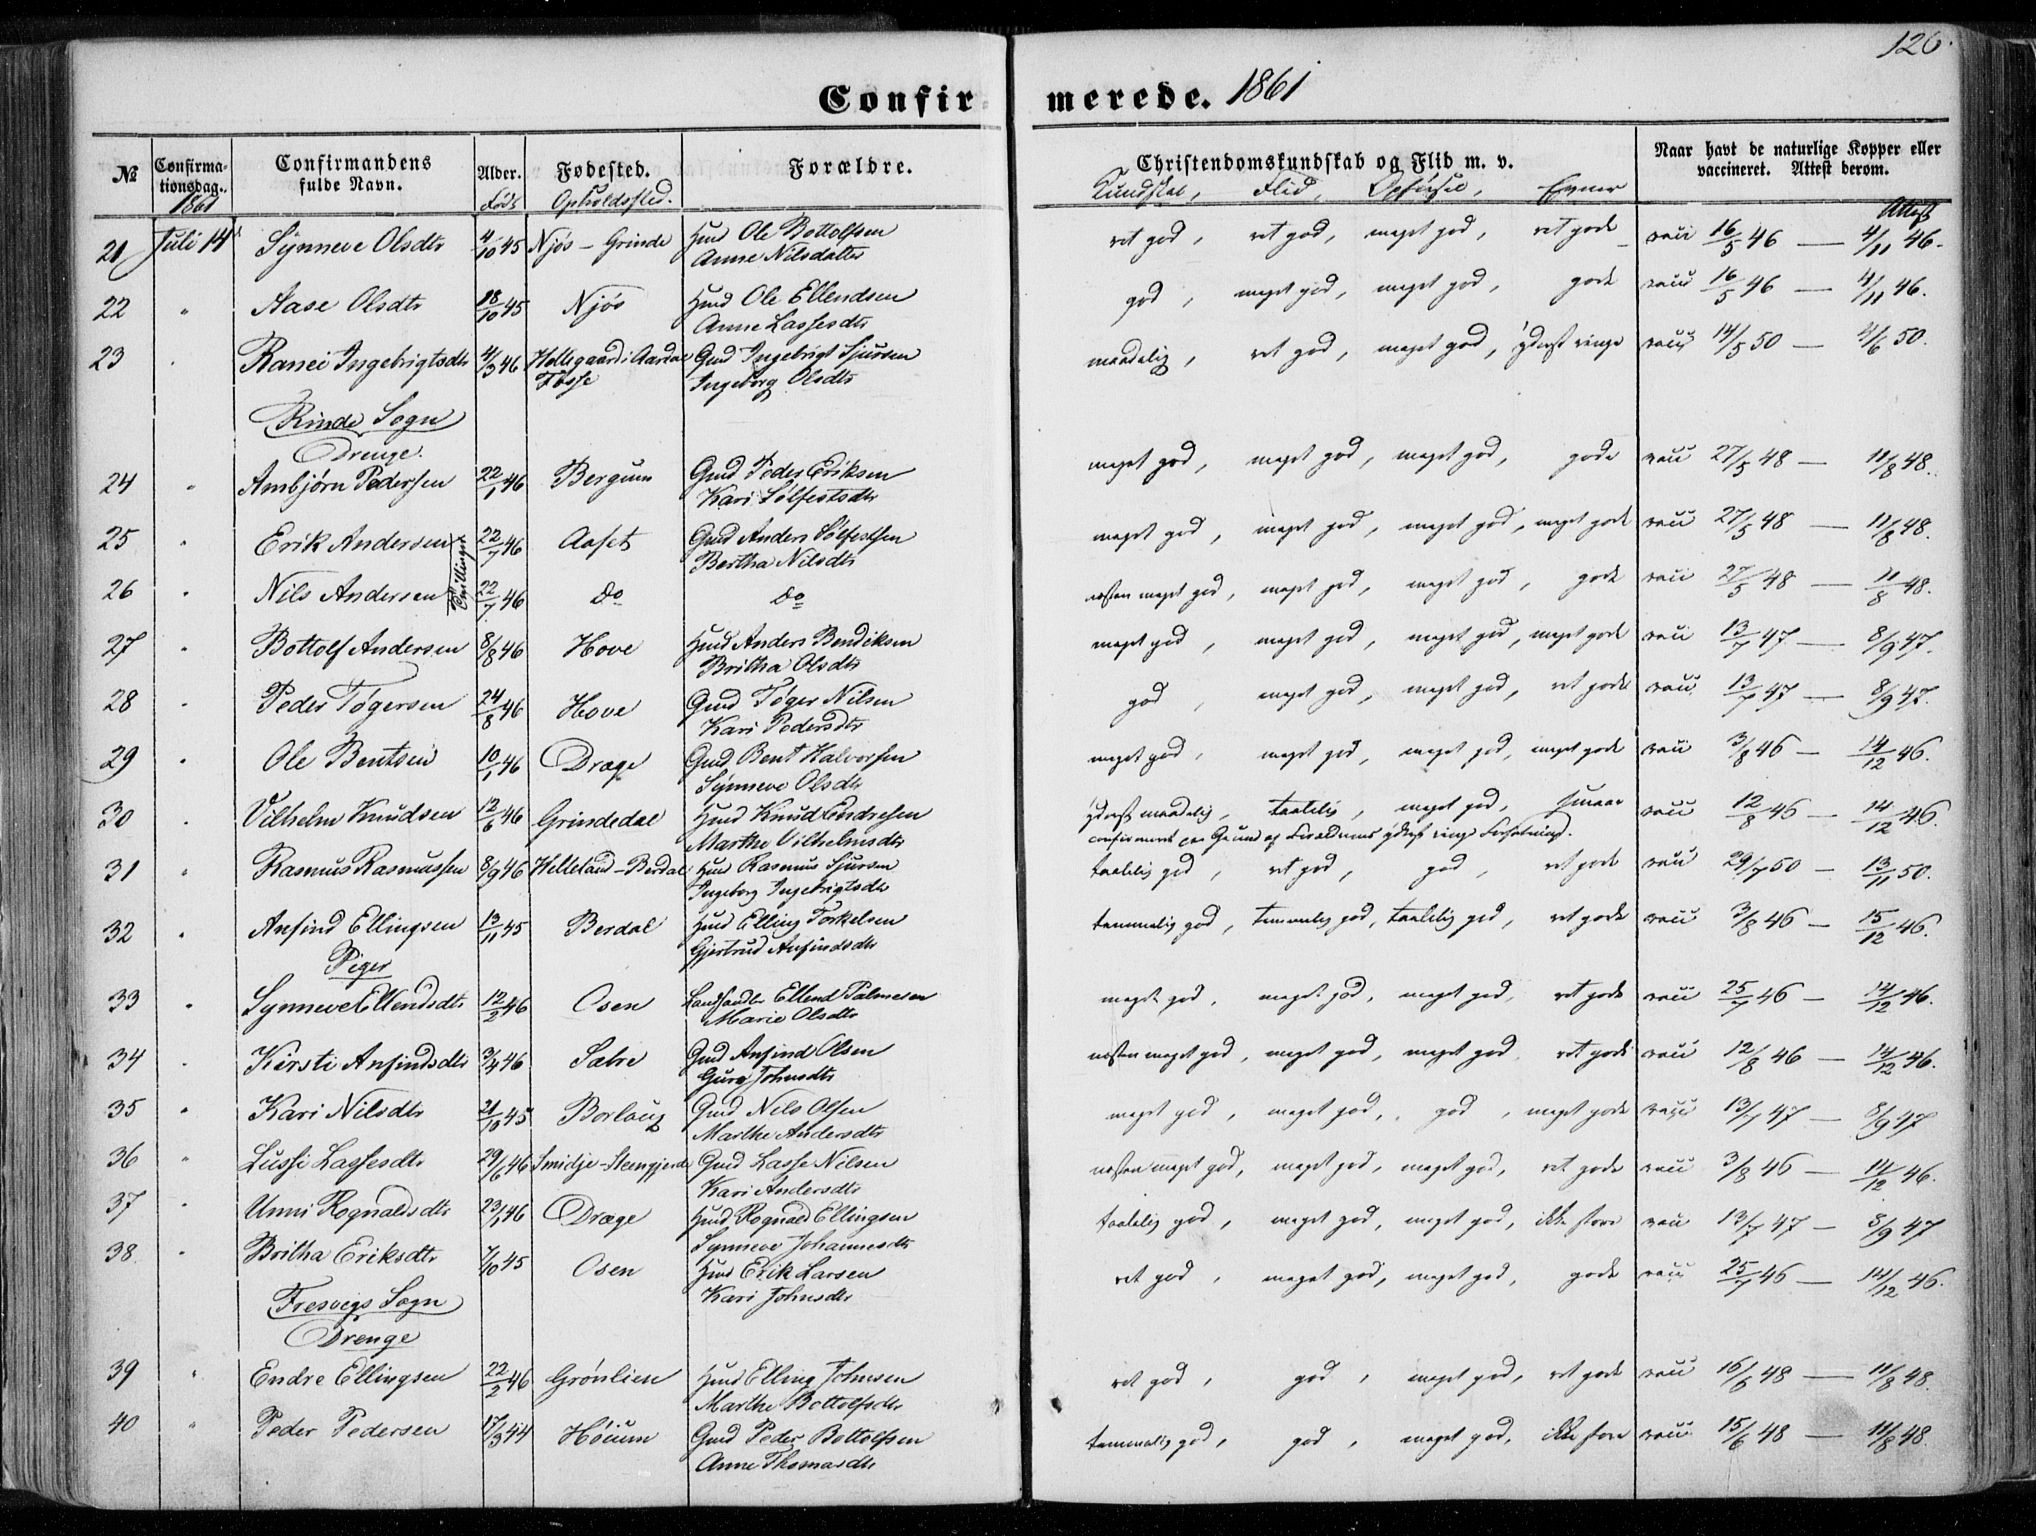 126.
Confirmerede. 1861
№ Confirmationsdag. 1861 Confirmandens fulde Navn. Alder. Født Fødested. Opholdssted. Forældre. Christendomskundskab og Flid m. v. Kundskab, Flid, Opførsel, Evner Naar havt de naturlige Kopper eller vaccineret. Attest derom. Attest
21 Juli 14 Synneve Olsdtr 4/10 45 Njøs – Grinde Hmd Ole Bottolfsen ret god, ret god, meget god, ret gode vacc 16/5 46 — 4/11 46.
Anne Nilsdatter
22 " Aase Olsdtr 18/10 45 Njøs Hmd Ole Ellendsen god, meget god, meget god, gode vacc 16/5 46 — 4/11 46.
Anne Lassesdtr
23 " Ranei Ingebrigtsdtr 4/3 46 Hellegaard i Aardal Gmd Ingebrigt Sjursen maadelig, ret god, meget god, yderst ringe vacc 14/5 50 — 2/6 50.
Fosse Ingeborg Olsdtr
Rinde Sogn
Drenge.
24 " Ambjørn Pedersen 22/1 46 Bergum Gmd Peder Eriksen meget god, meget god, meget god, gode vacc 27/5 48 — 11/8 48.
Kari Sølfestsdtr
25 " Erik Andersen Tvillinger 22/7 46 Aaset Gmd Anders Sølfestsen meget god, meget god, meget god, meget gode vacc 27/5 48 — 11/8 48.
Bertha Nilsdtr
26 " Nils Andersen 22/7 46 Do Do næsten meget god, meget god, meget god, gode vacc 27/5 48 — 11/8 48.
27 " Bottolf Andersen 8/8 46 Hove Hmd Anders Bendiksen meget god, meget god, meget god, meget gode vacc 13/7 47 — 8/9 47.
Britha Olsdtr
28 " Peder Tøgersen 24/8 46 Hove Gmd Tøger Nilsen god, meget god, meget god, ret gode vacc 13/7 47 — 8/9 47.
Kari Pedersdtr
29 " Ole Bentsen 10/1 46 Drage Gmd Bent Halvorsen meget god, meget god, meget god, meget gode vacc 3/8 46 — 14/12 46.
Synneve Olsdtr
30 " Vilhelm Knudsen 12/6 46 Grindedal Hmd Knud Endresen yderst maadelig, taalelig, meget god, smaae vacc 12/8 46 — 14/12 46.
Marthe Vilhelmsdtr confirmeret paa Grund af Forældrenes yderst ringe Forfatning.
31 " Rasmus Rasmussen 8/9 46 Helleland – Berdal Hmd Rasmus Sjursen taalelig god, ret god, god, ret gode vacc 29/7 50 — 13/11 50.
Ingeborg Ingebrigtsdtr
32 " Anfind Ellingsen 13/11 45 Berdal Hmd Elling Torkelsen temmelig god, temmelig god, taalelig god, ret gode vacc 3/8 46 — 15/12 46.
Piger Gjertrud Anfindsdtr
33 " Synneve Ellendsdtr 12/2 46 Osen Landhandler Ellend Palmesen meget god, meget god, meget god, ret gode vacc 25/7 46 — 14/12 46.
Marie Olsdtr
34 " Kirsti Anfindsdtr 3/4 46 Sælve Gmd Anfind Olsen næsten meget god, meget god, meget god, ret gode vacc 12/8 46 — 14/12 46.
Guro Johnsdtr
35 " Kari Nilsdtr 21/10 45 Borlaug Gmd Nils Olsen meget god, meget god, god, meget gode vacc 13/7 47 — 8/9 47
Marthe Andersdtr
36 " Lussi Lassesdtr 29/6 46 Smidje – Steengjerde Gmd Lasse Nilsen næsten meget god, meget god, meget god, ret gode vacc 3/8 46 — 14/12 46.
Kari Andersdtr
37 " Unni Rognaldsdtr 23/1 46 Drage Hmd Rognald Ellingsen taalelig god, meget god, meget god, ikke store vacc 13/7 47 — 8/9 47
Synneve Johannesdtr
38 " Britha Eriksdtr 7/10 45 Osen Hmd Erik Larsen ret god, meget god, meget god, gode vacc 25/7 46 — 14/12 46.
Kari Johnsdtr
Fresvigs Sogn
Drenge
39 " Endre Ellingsen 22/2 46 Grønlien Hmd Elling Johnsen ret god, god, meget god, ret gode vacc 16/6 48 — 11/8 48.
Marthe Bottolfsdtr
40 " Peder Pedersen 17/3 44 Høium Gmd Peder Bottolfsen temmelig god, god, meget god, ikke store vacc 15/6 48 — 11/8 48.
Anne Thomasdtr